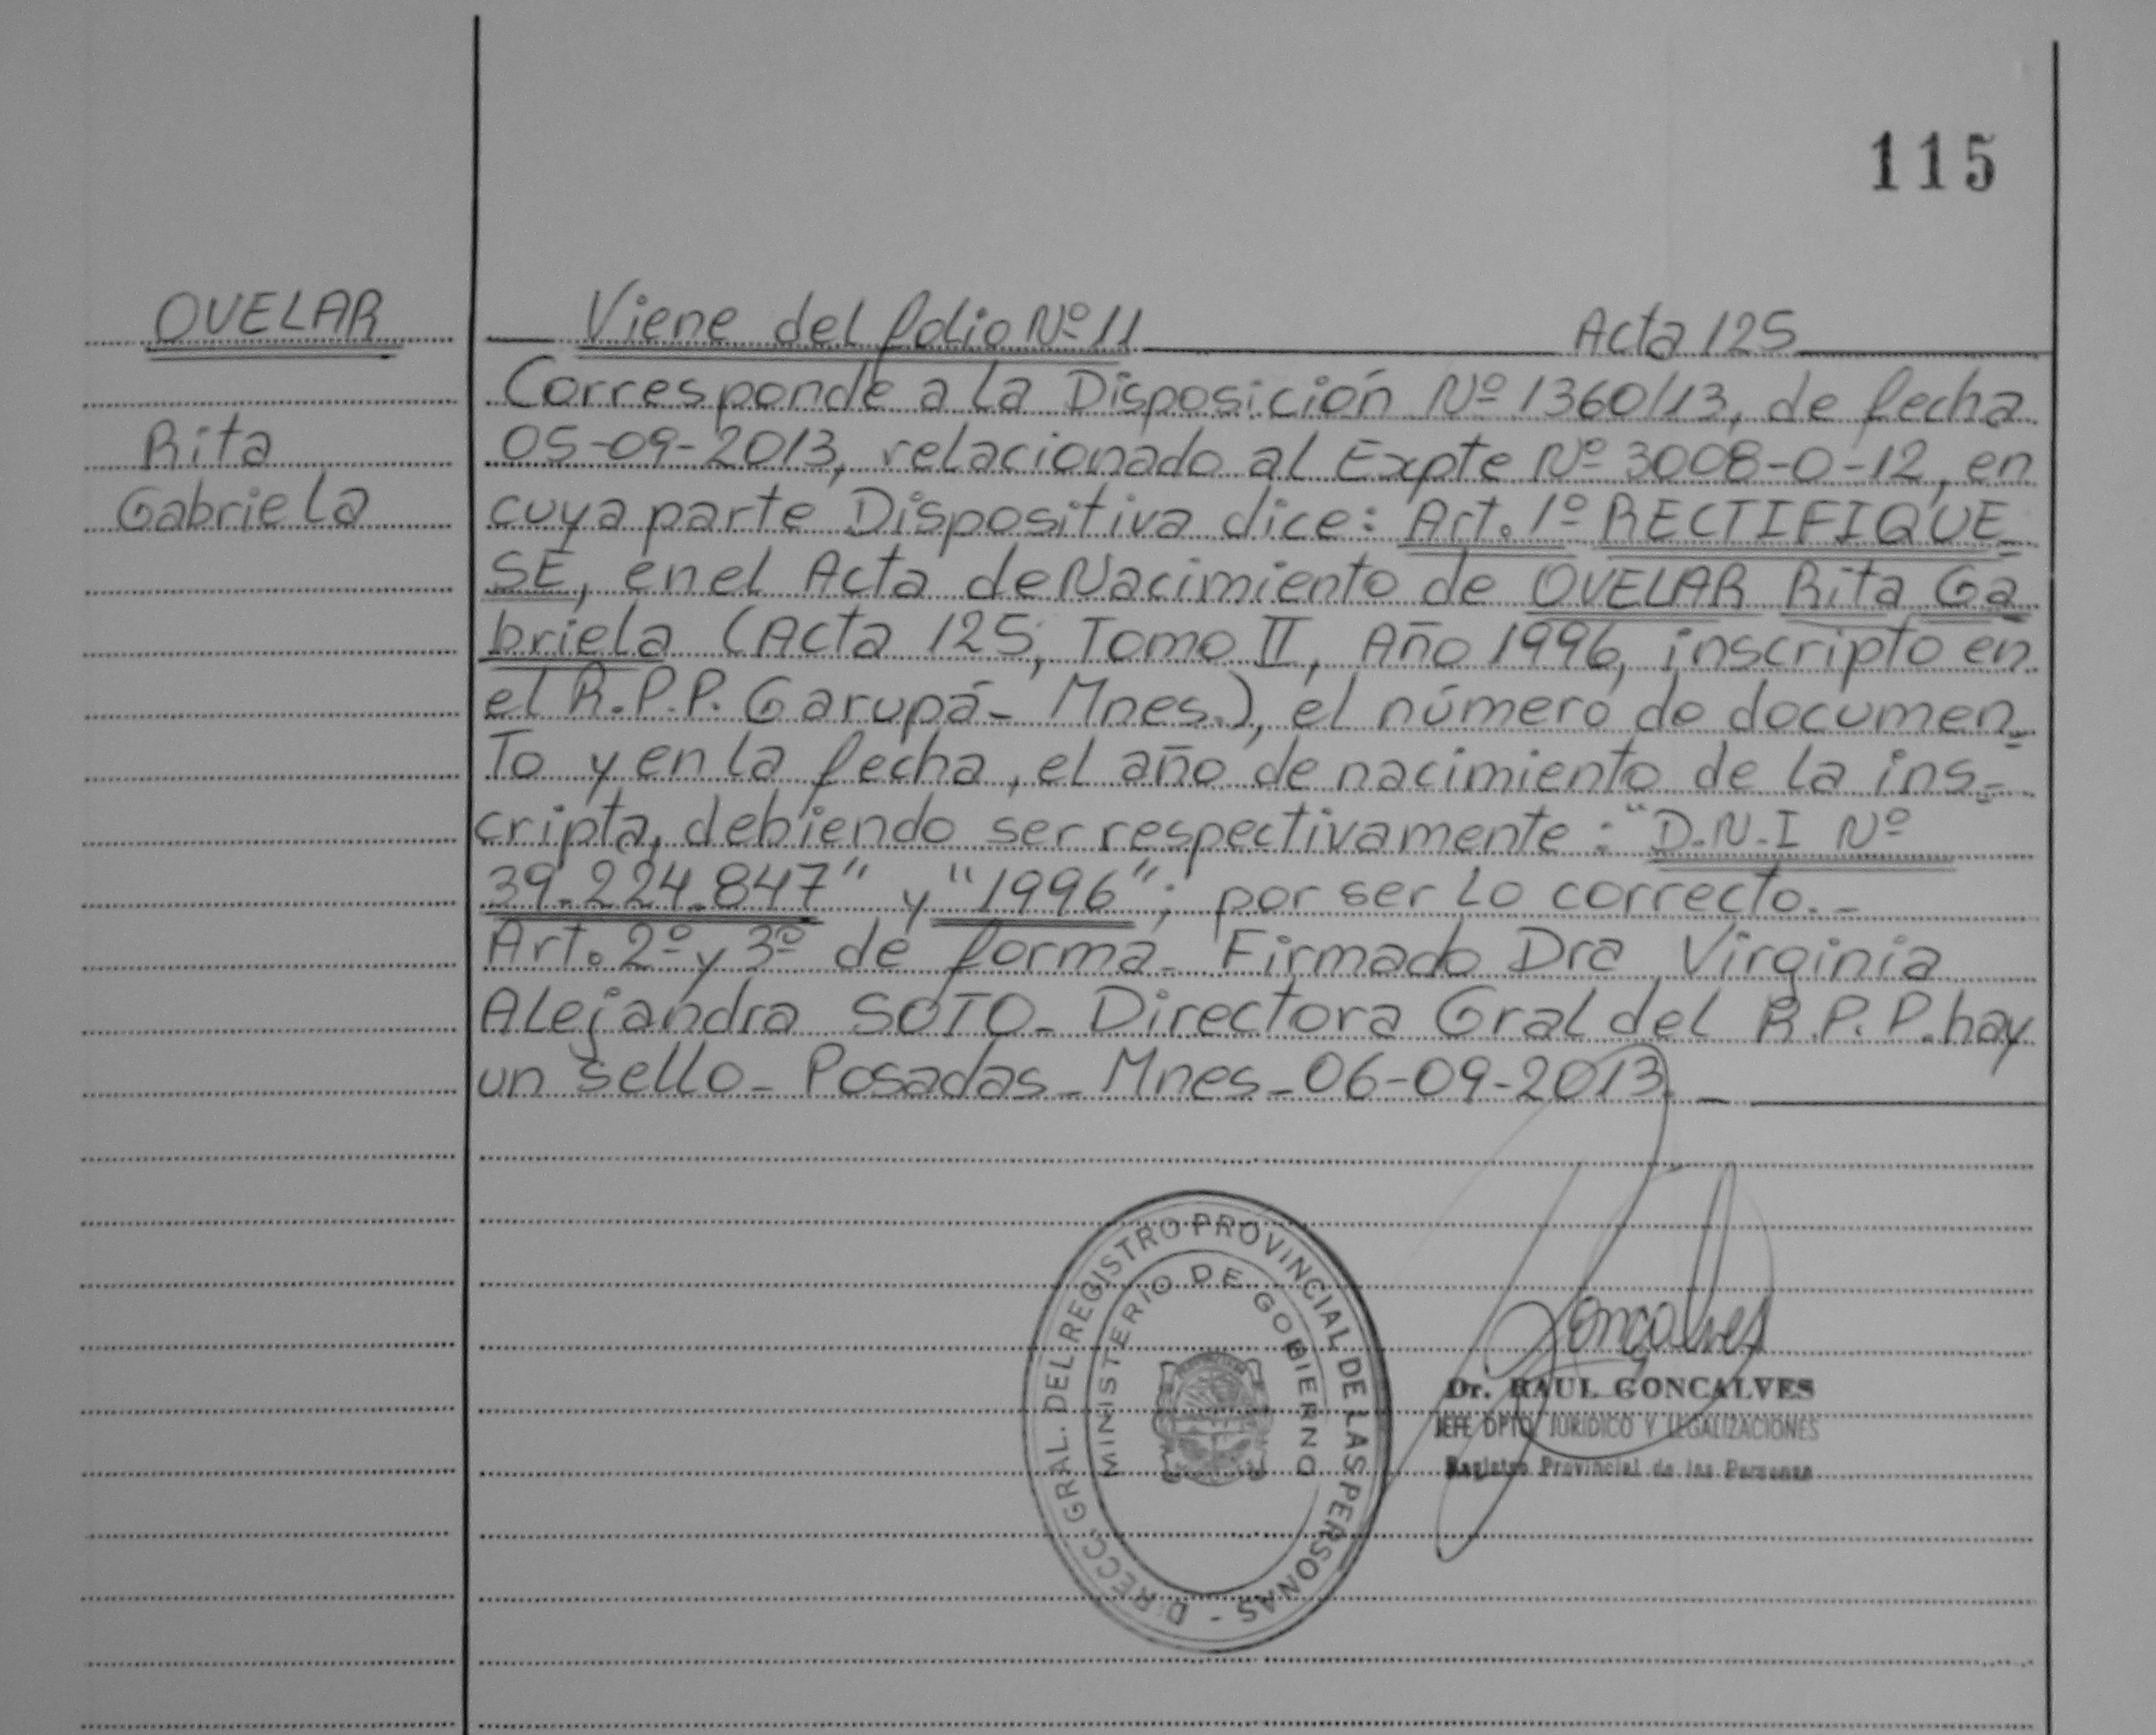 115
OVELAR
Viene del folio Nº 11 Acta 125
Corresponde a la Disposición Nº 1360/13, de fecha
Rita
05-09-2013, relacionado al Expte Nº 3008-0-12, en
Gabriela
cuya parte Dispositiva dice: Art. 1º RECTIFIQUE
SE, en el Acta de Nacimiento de OVELAR Rita Ga
briela (Acta 125, Tomo II, Año 1996, inscripto en
el R.P.P. Garupá- Mnes.), el número de documen-
To y en la fecha, el año de nacimiento de la ins-
cripta, debiendo ser respectivamente: "D.N.I Nº
39.224.847" y "1996"; por ser lo correcto.-
Art. 2º y 3º de forma- Firmado Dra Virginia
Alejandra SOTO- Directora Gral del R.P.P. hay
un sello- Posadas- Mnes-06-09-2013.-
DIRECC. GRAL. DEL REGISTRO PROVINCIAL DE LAS PERSONAS -
MINISTERIO DE GOBIERNO
Gonçalves
Dr. RAUL GONCALVES
JEFE DPTO. JURIDICO Y LEGALIZACIONES
Registro Provincial de las Personas